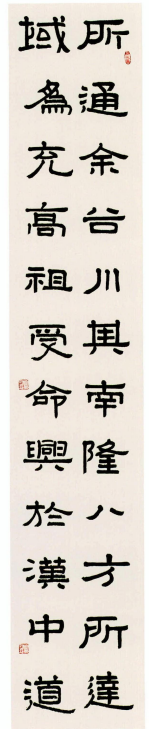 所通余谷川其南隆八方所達
域為充高祖受命興於漢中道